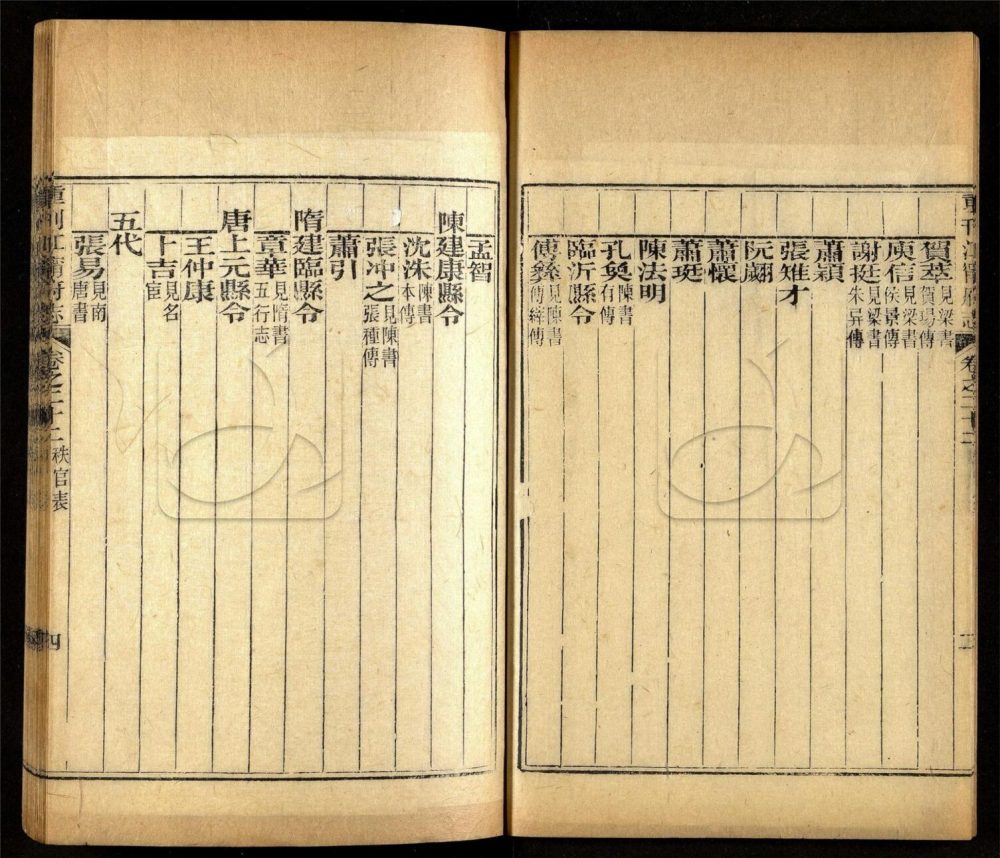 重刊江寧府志 卷之二十二
賀蕡 見梁書賀瑒傳
庾信 見梁書侯景傳
謝挺 見梁書朱异傳
蕭穎
張雉才
阮翽
蕭懷
蕭珽
陳法明
孔奐 陳書有傳
臨沂縣令
傅縡 見陳書傅縡傳
孟智
陳建康縣令
沈洙 陳書本傳
張冲之 見陳書張種傳
蕭引
隋建臨縣令
章華 見隋書五行志
唐上元縣令
王仲康
卜吉 見名宦
五代
張易 見南唐書
重刊江寧府志 卷之二十二 秩官表 四